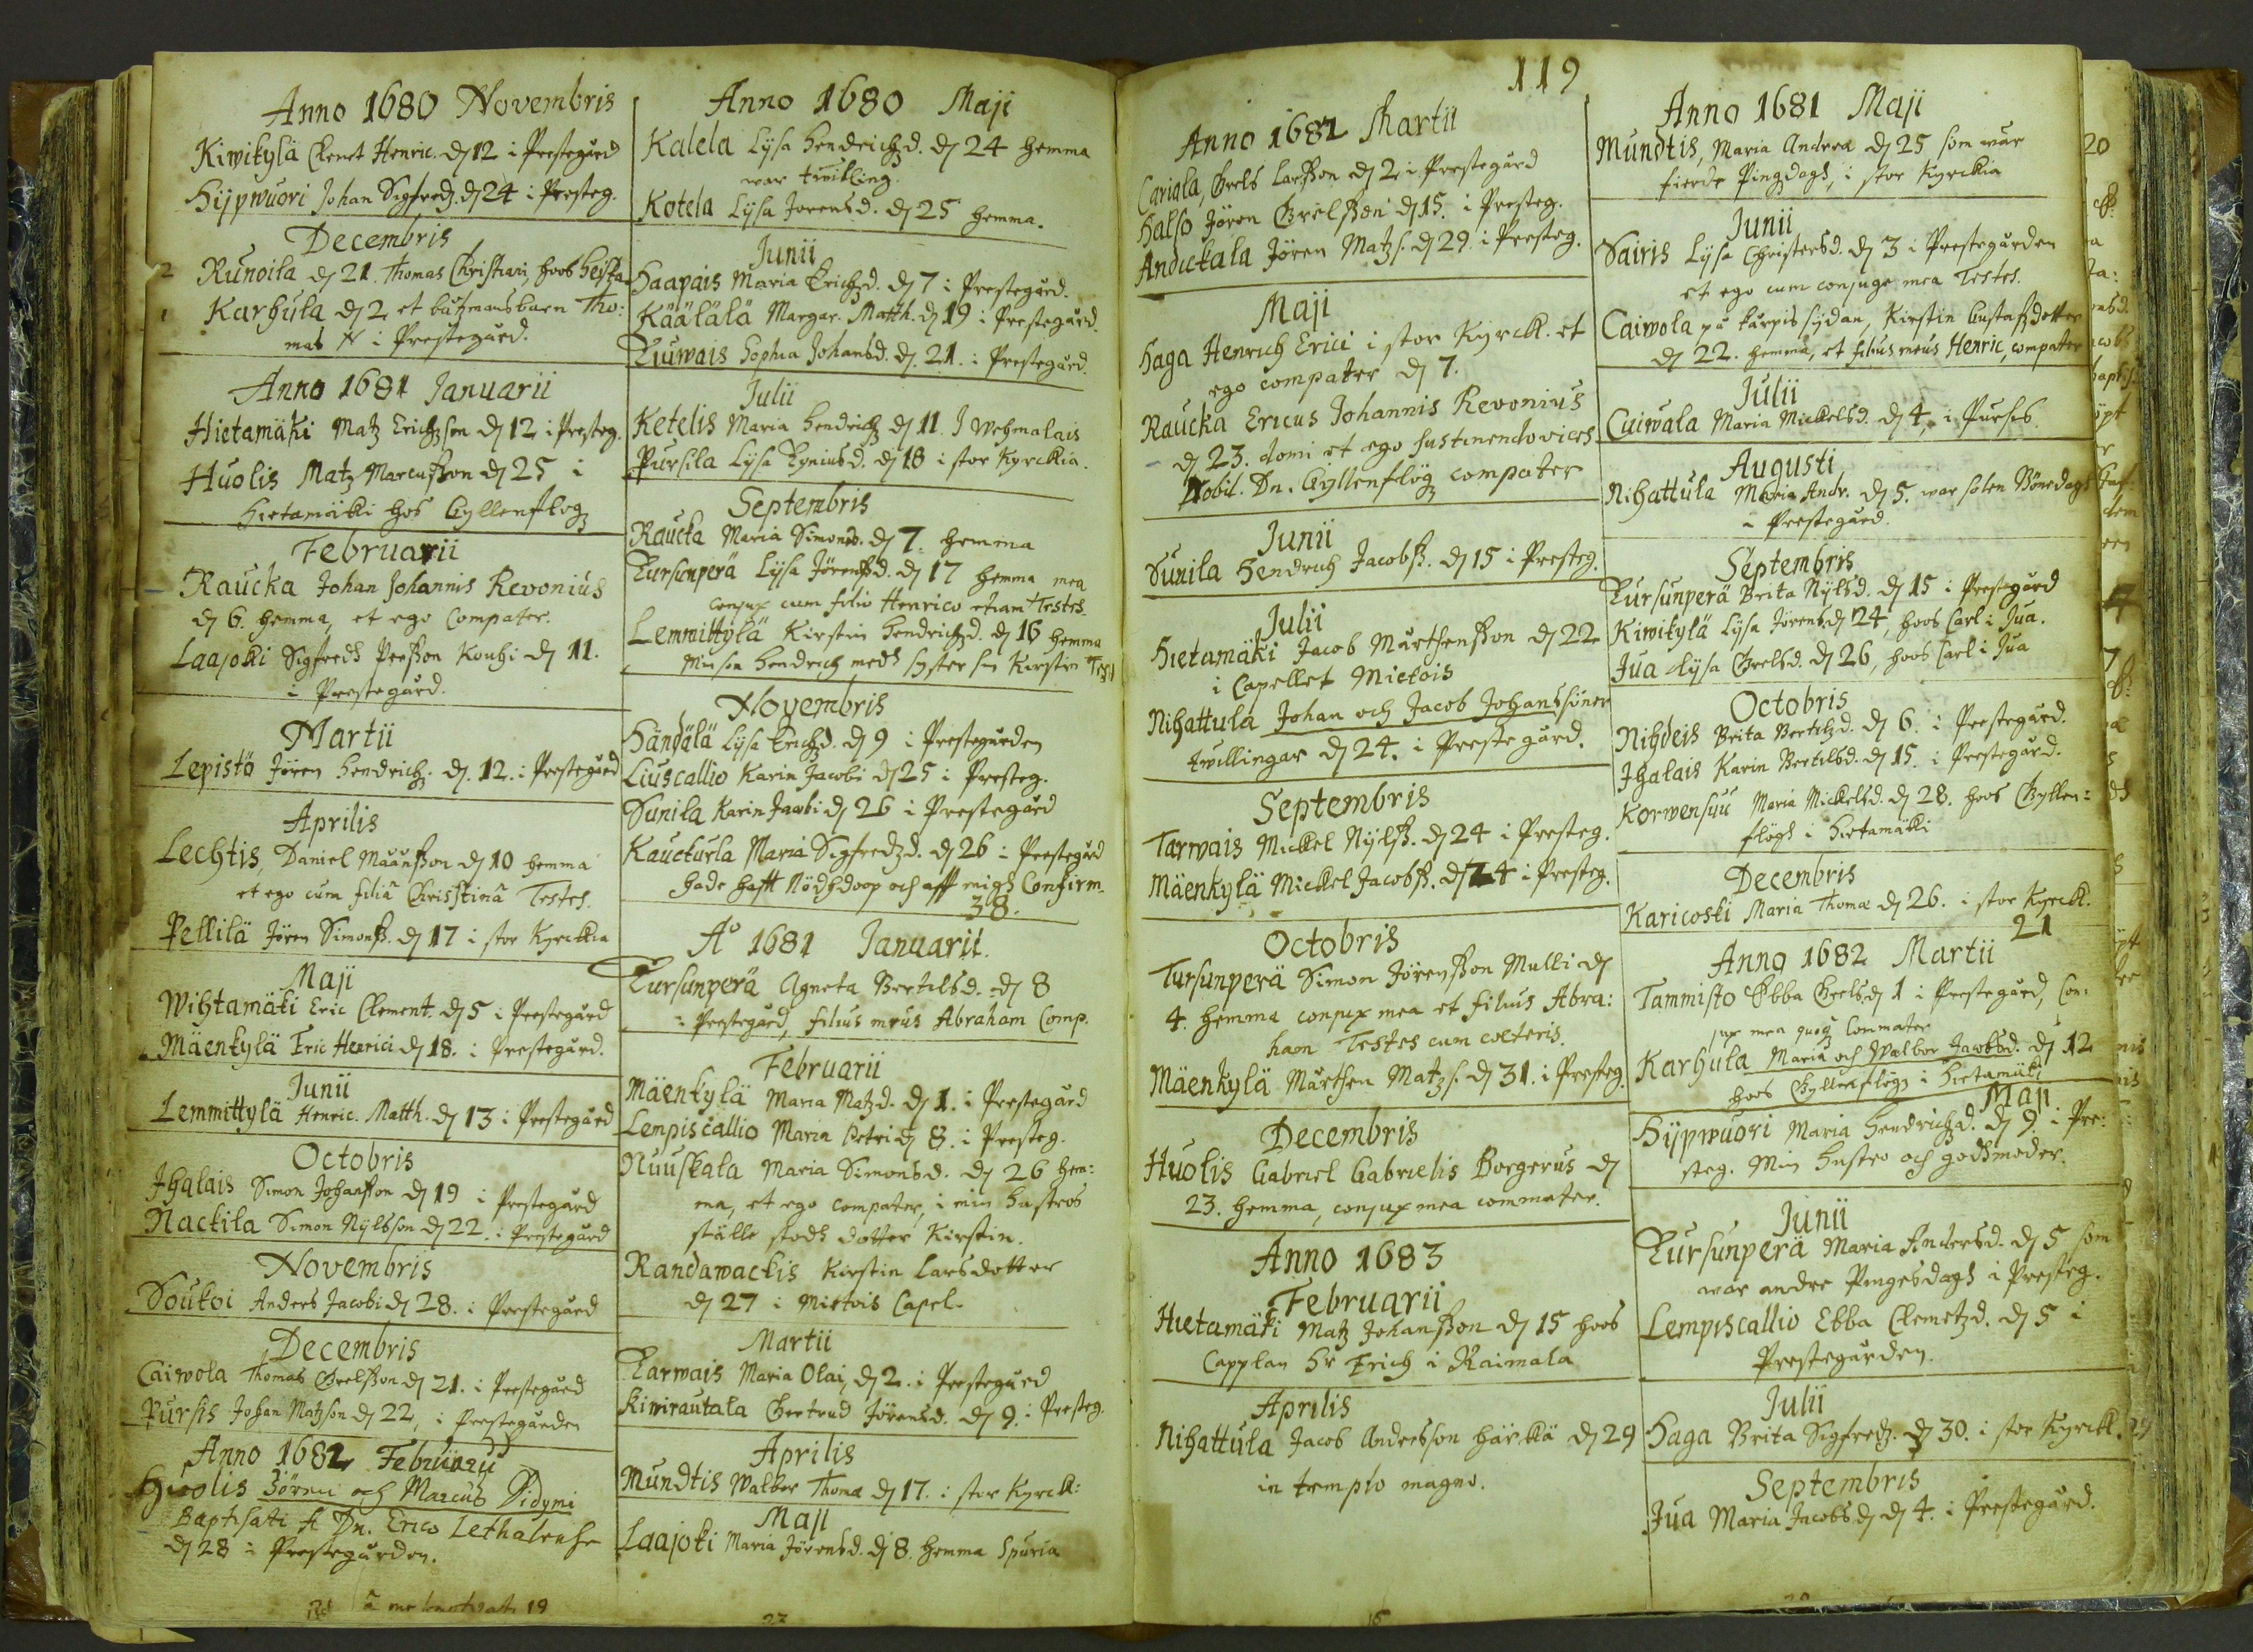 Anno 1680 Novembris
Kiwikylä Clemet Henric. d 12 i Prestegård
Hijpwuori Johan Sigfredz. d 24 i Presteg.
Decembris
2 Runoila d 21. Thomas Christiani, hoos
1 Karhula d 2 et båtzmansbarn Tho:
mas N i Prestegård.
Anno 1681 Januarii
Hietamäki Matz Erichzson d 12 i Presteg.
Huolis Matz Marcusson d 25 i
Hietamäki hos Gyllenflög
Februarii
Raucka Johan Johannis Revonius
d 6. hemma, et ego Compater.
Laajoki Sigfredh Persson Kouhi d 11.
i Prestegård.
Martii
Lepistö Jören Hendrichz. d. 12. i Prestegård
Aprilis
Lechtis, Daniel Månsson d 10 hemma
et ego cum filiâ Christinâ Testes.
Pellilä Jören Simonss. d 17 i stor Kyrckia
Maji
Wihtamäki Eric Clement. d 5 i Prestegård
Mäenkylä Eric Henrici d 18. i Prestegård.
Junii
Lemmittylä Henric. Matth. d 13 i Prestegård
Octobris
Ihalais Simon Johansson d 19 i Prestegård
Nackila Simon Nylsson d 22. i Prestegård
Novembris
Soukoi Anders Jacobi d 28. i Prestegård
Decembris
Caiwola Thomas Grelsson d 21. i Prestegård
Pursis Johan Matzson d 22, i Prestegården
Anno 1682 Februarij
Huolis Jören och Marcus Didymi
Baptisati Dn. Erico Lethalense
d 28 i Prestegården.
à me 19
Anno 1680 Maji
Kalela Lysa Hendrichzd. d 24 hemma
war twilling.
Kotela Lysa Jörensd. d 25 hemma.
Junii
Haapais Maria Erichzd. d 7 i Prestegård.
Käälälä Margar. Matth. d 19 i Prestegård.
Tiuwais Sophia Johansd. d. 21. i Prestegård.
Julii
Ketelis Maria Hendrichz d 11. I Wehmalais
Pursila Lysa d. 18 i stor Kyrckia.
Septembris
Raucka Maria Simonsd. d 7. hemma
Tursunperä Lysa Jörensd. d 17 hemma mea
conjux cum filio Henrico etiam Testes.
Lemmittylä Kirstin Hendrichzd. d 16 hemma
Min son Hendrich medh syster sin Kirstin
Novembris
Händälä Lysa Erichzd. d 9 i Prestegården
Liuscallio Karin Jacobi d 25 i Presteg.
Sunila Karin Jacobi d 26 i Prestegård
Kauckurla Maria Sigfredzd. d 26 i Prestegård
hade hafft Nödhdoop och aff migh Confirm.
38.
A° 1681 Januarii.
Tursunperä Agneta Bertilsd. d 8
i Prestegård, filius meus Abraham Comp.
Februarii
Mäenkylä Maria Matzd. d 1. i Prestegård
Lempiscallio Maria Petri d 8. i Presteg.
Nuuskala Maria Simonsd. d 26 hem:
ma, et ego compater, i min hustros
ställe stodh dotter Kirstin.
Randawackis Kirstin Larsdotter
d 27 i Mietois Capel.
Martii
Tarwais Maria Olai, d 2. i Prestegård
Kiwirautala Gertrud Jörensd. d 9. i Presteg.
Aprilis
Mundtis Walbor Thomæ d 17. i stor Kyrck:
Maji
Laajoki Maria Jörensd. d 8. hemma Spuria
23
119
Anno 1682 Martii
Cariala, Grels Larsson d 2 i Prestegård
Halso Jören Grelsson d 15. i Presteg.
Andickala Jören Matzs. d 29. i Presteg.
Maji
Haga Henrich Erici i stor Kyrck. et
ego compater d 7.
Raucka Ericus Johannis Revonius
d 23. domi et ego sustinendo vices
Nobil. Dn. Gyllenflög compater
Junii
Sunila Hendrich Jacobss. d 15 i Presteg.
Julii
Hietamäki Jacob Mårthensson d 22
i Capellet Mietois
Nihattula Johan och Jacob Johanssöner
twillingar d 24. i Prestegård.
Septembris
Tarwais Mickel Nylss. d 24 i Presteg.
Mäenkylä Mickel Jacobss. d 24 i Presteg.
Octobris
Tursunperä Simon Jörensson Mulli d
4. hemma conjux mea et filius Abra:
ham Testes cum cæteris.
Mäenkylä Mårthen Matzs. d 31. i Presteg.
Decembris
Huolis Gabriel Gabrielis Borgerus d
23. hemma, conjux mea commater.
Anno 1683
Februarii
Hietamäki Matz Johansson d 15 hoos
Capplan Hr Erich i Raimala
Aprilis
Nihattula Jacob Andersson Härkä d 29
in templo magno.
15
Anno 1681 Maji
Mundtis, Maria Andreæ d 25 som war
fierde Pingzdagh, i stor Kyrckia
Junii
Sairis Lysa Christersd. d 3 i Prestegården
et ego cum conjuge mea Testes.
Caiwola på Karpis sydan, Kirstin Gustafzdotter
d 22. hemma, et filius meus Henric, compater
Julii
Caiwala Maria Mickelsd. d 4, i Pursis.
Augusti
Nihattula Maria Andr. d 5. war solen Bönedagh
i Prestegård.
Septembris
Tursunperä Brita Nylsd. d 15 i Prestegård
Kiwikylä Lysa Jörens. d 24, hoos Carl i Jua.
Jua Lysa Grelsd. d 26, hoos Carl i Jua
Octobris
Nihdeis Brita Bertilzd. d 6. i Prestegård.
Ihalais Karin Bertilsd. d 15. i Prestegård.
Korwensuu Maria Mickelsd. d 28. hoos Gyllen:
flögh i Hietamäki
Decembris
Karicoski Maria Thomæ d 26. i stor Kyrck.
21
Anno 1682 Martii
Tammisto Ebba Grels. d 1 i Prestegård, Con:
jux mea quoq commater
Karhula Maria och Walbor Jacobsd. d 12
hoos Gyllenflög i Hietamäki
Maji
Hijpwuori Maria Hendrichzd. d 9. i Pre:
steg. Min hustro och godhmoder.
Junii
Tursunperä Maria Andersd. d 5 som
war andre Pingesdagh i Presteg.
Lempiscallio Ebba Clemetzd. d 5 i
Prestegården.
Julii
Haga Brita Sigfredz. d 30. i stor Kyrck.
Septembris
Jua Maria Jacobsd. d 4. i Prestegård.
20